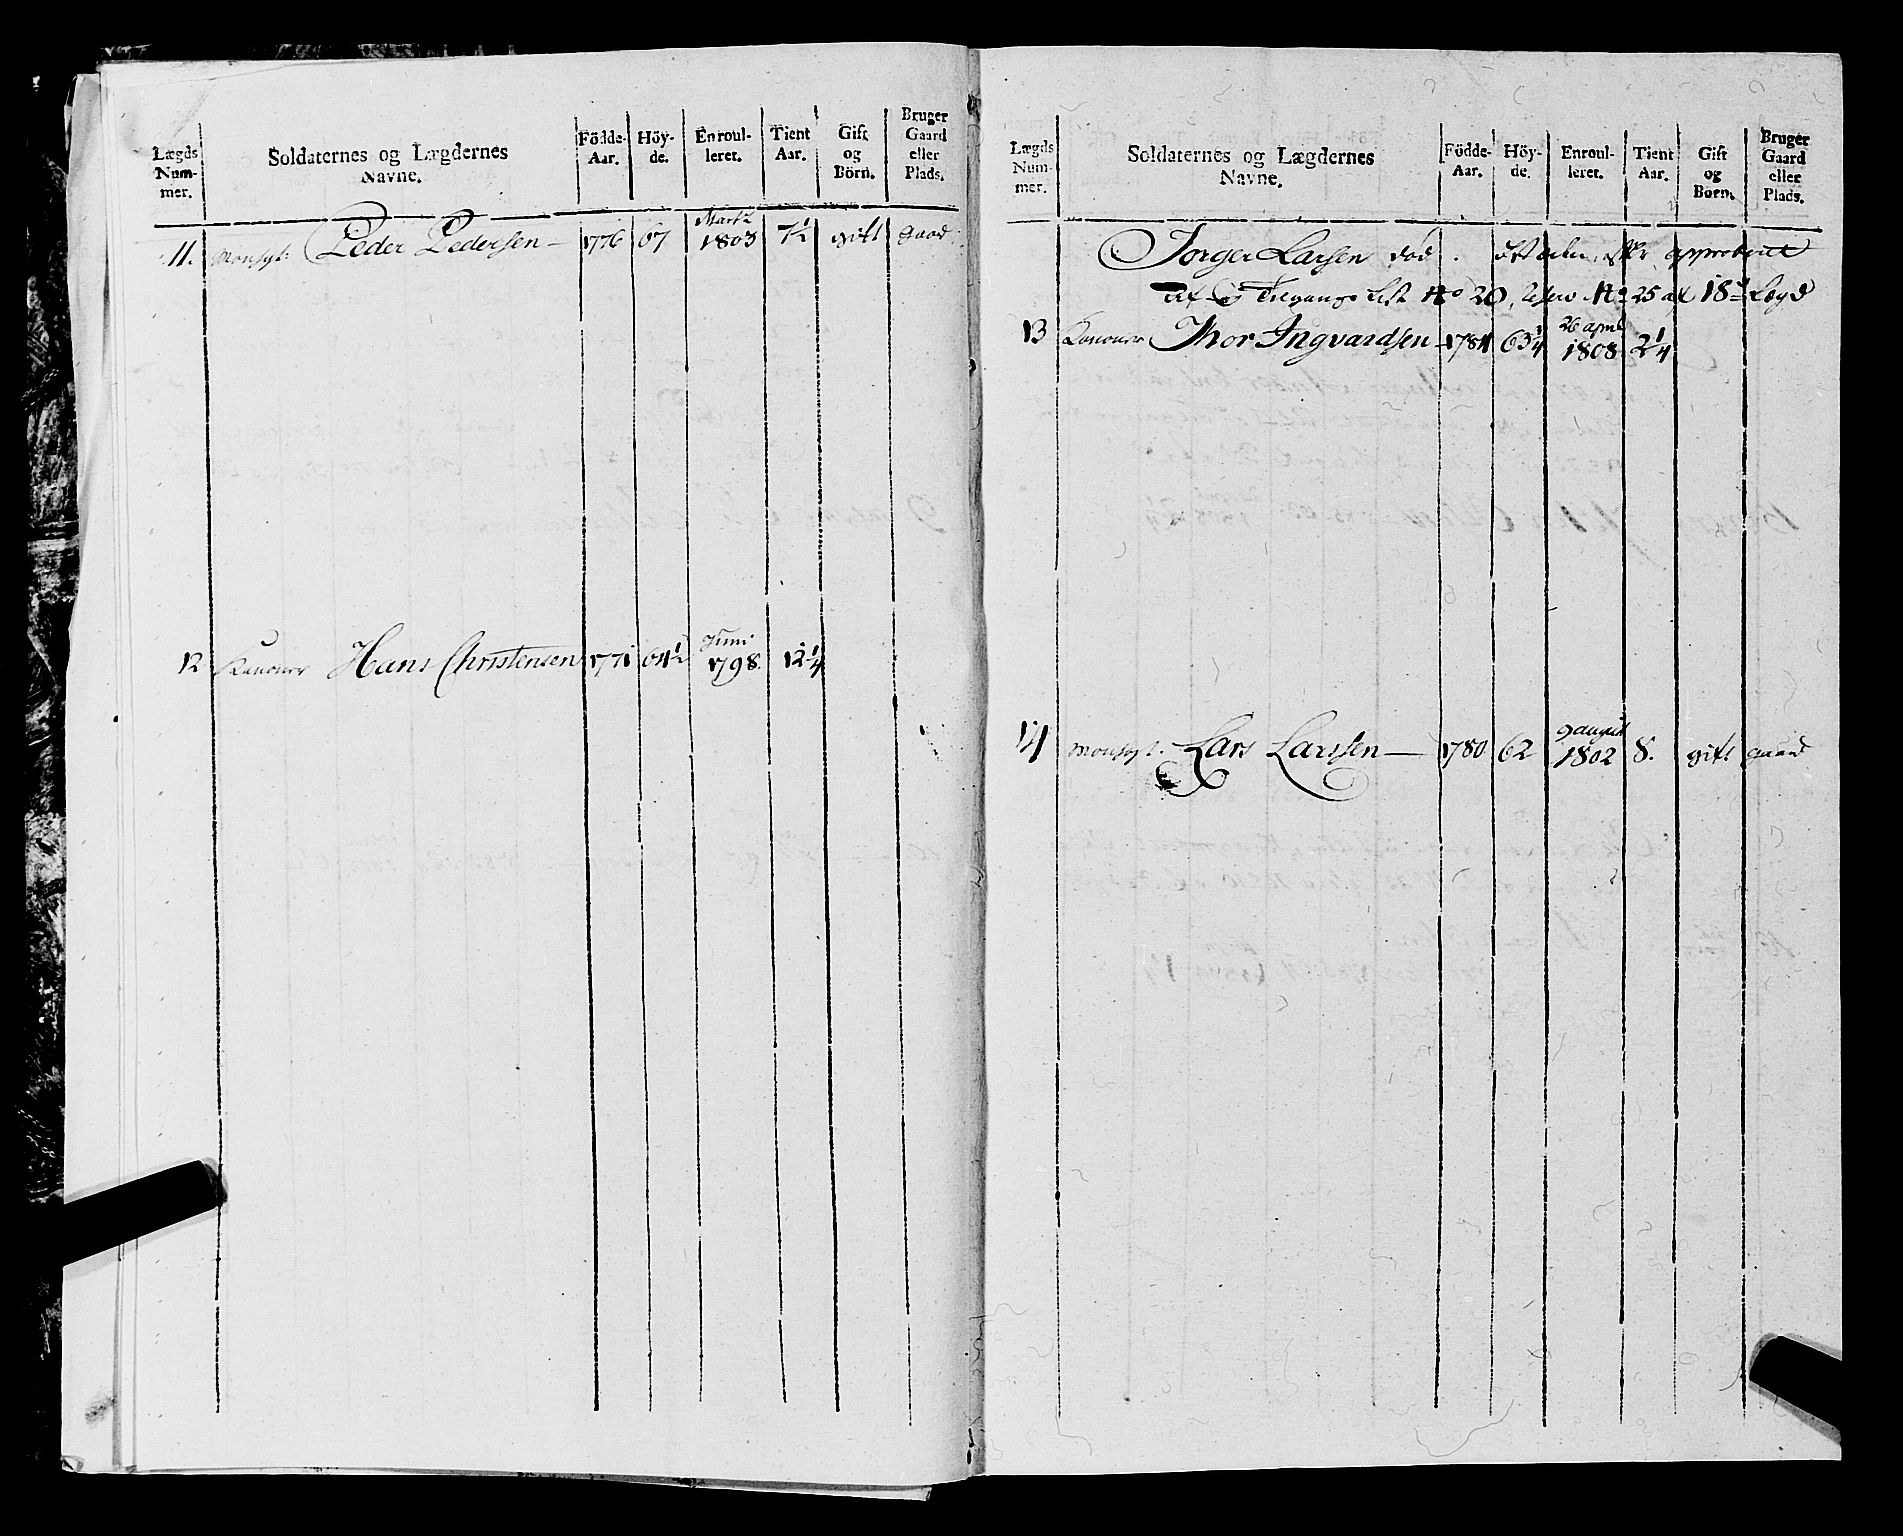 Lægds Num- mer.
Soldaternes og Lægdernes Navne.
Födde- Aar.
Höy- de.
Enroul- leret.
Tient Aar.
Gift og Börn.
Bruger Gaard eller Plads.
11. Peder Pedersen — 1776 67 Martz 1803 7½ gift gaard
12 Kanoner Hans Christensen 1771 64½ Juni 1798. 12¼
Lægds Num- mer.
Soldaternes og Lægdernes Navne.
Födde- Aar.
Höy- de.
Enroul- leret.
Tient Aar.
Gift og Börn.
Bruger Gaard eller Plads.
Larsen död. approberit
af Tilgangs List No 20, No 25 af 18de Lægd
13 Kanoner Thor Ingvardsen 1784 63¼ 26 april 1808 2¼
14 Lars Larssen — 1780 62 9 august 1802 8. gift gaard